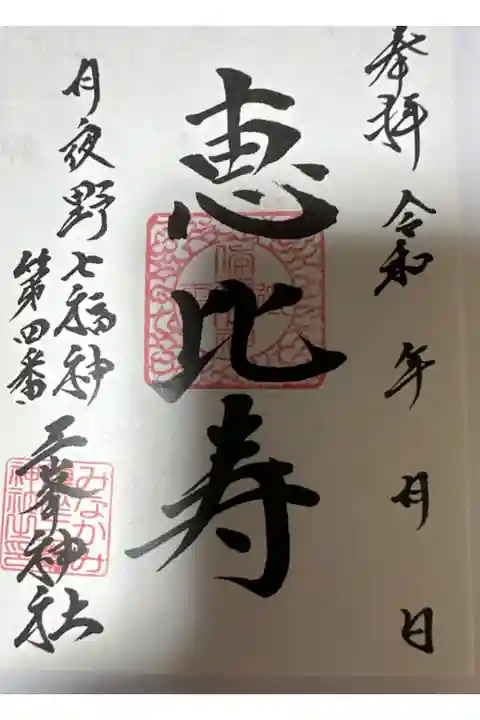 奉拝 令和 年 月 日
恵比寿
月夜野七福神
第四番
三峯神社
みなかみ